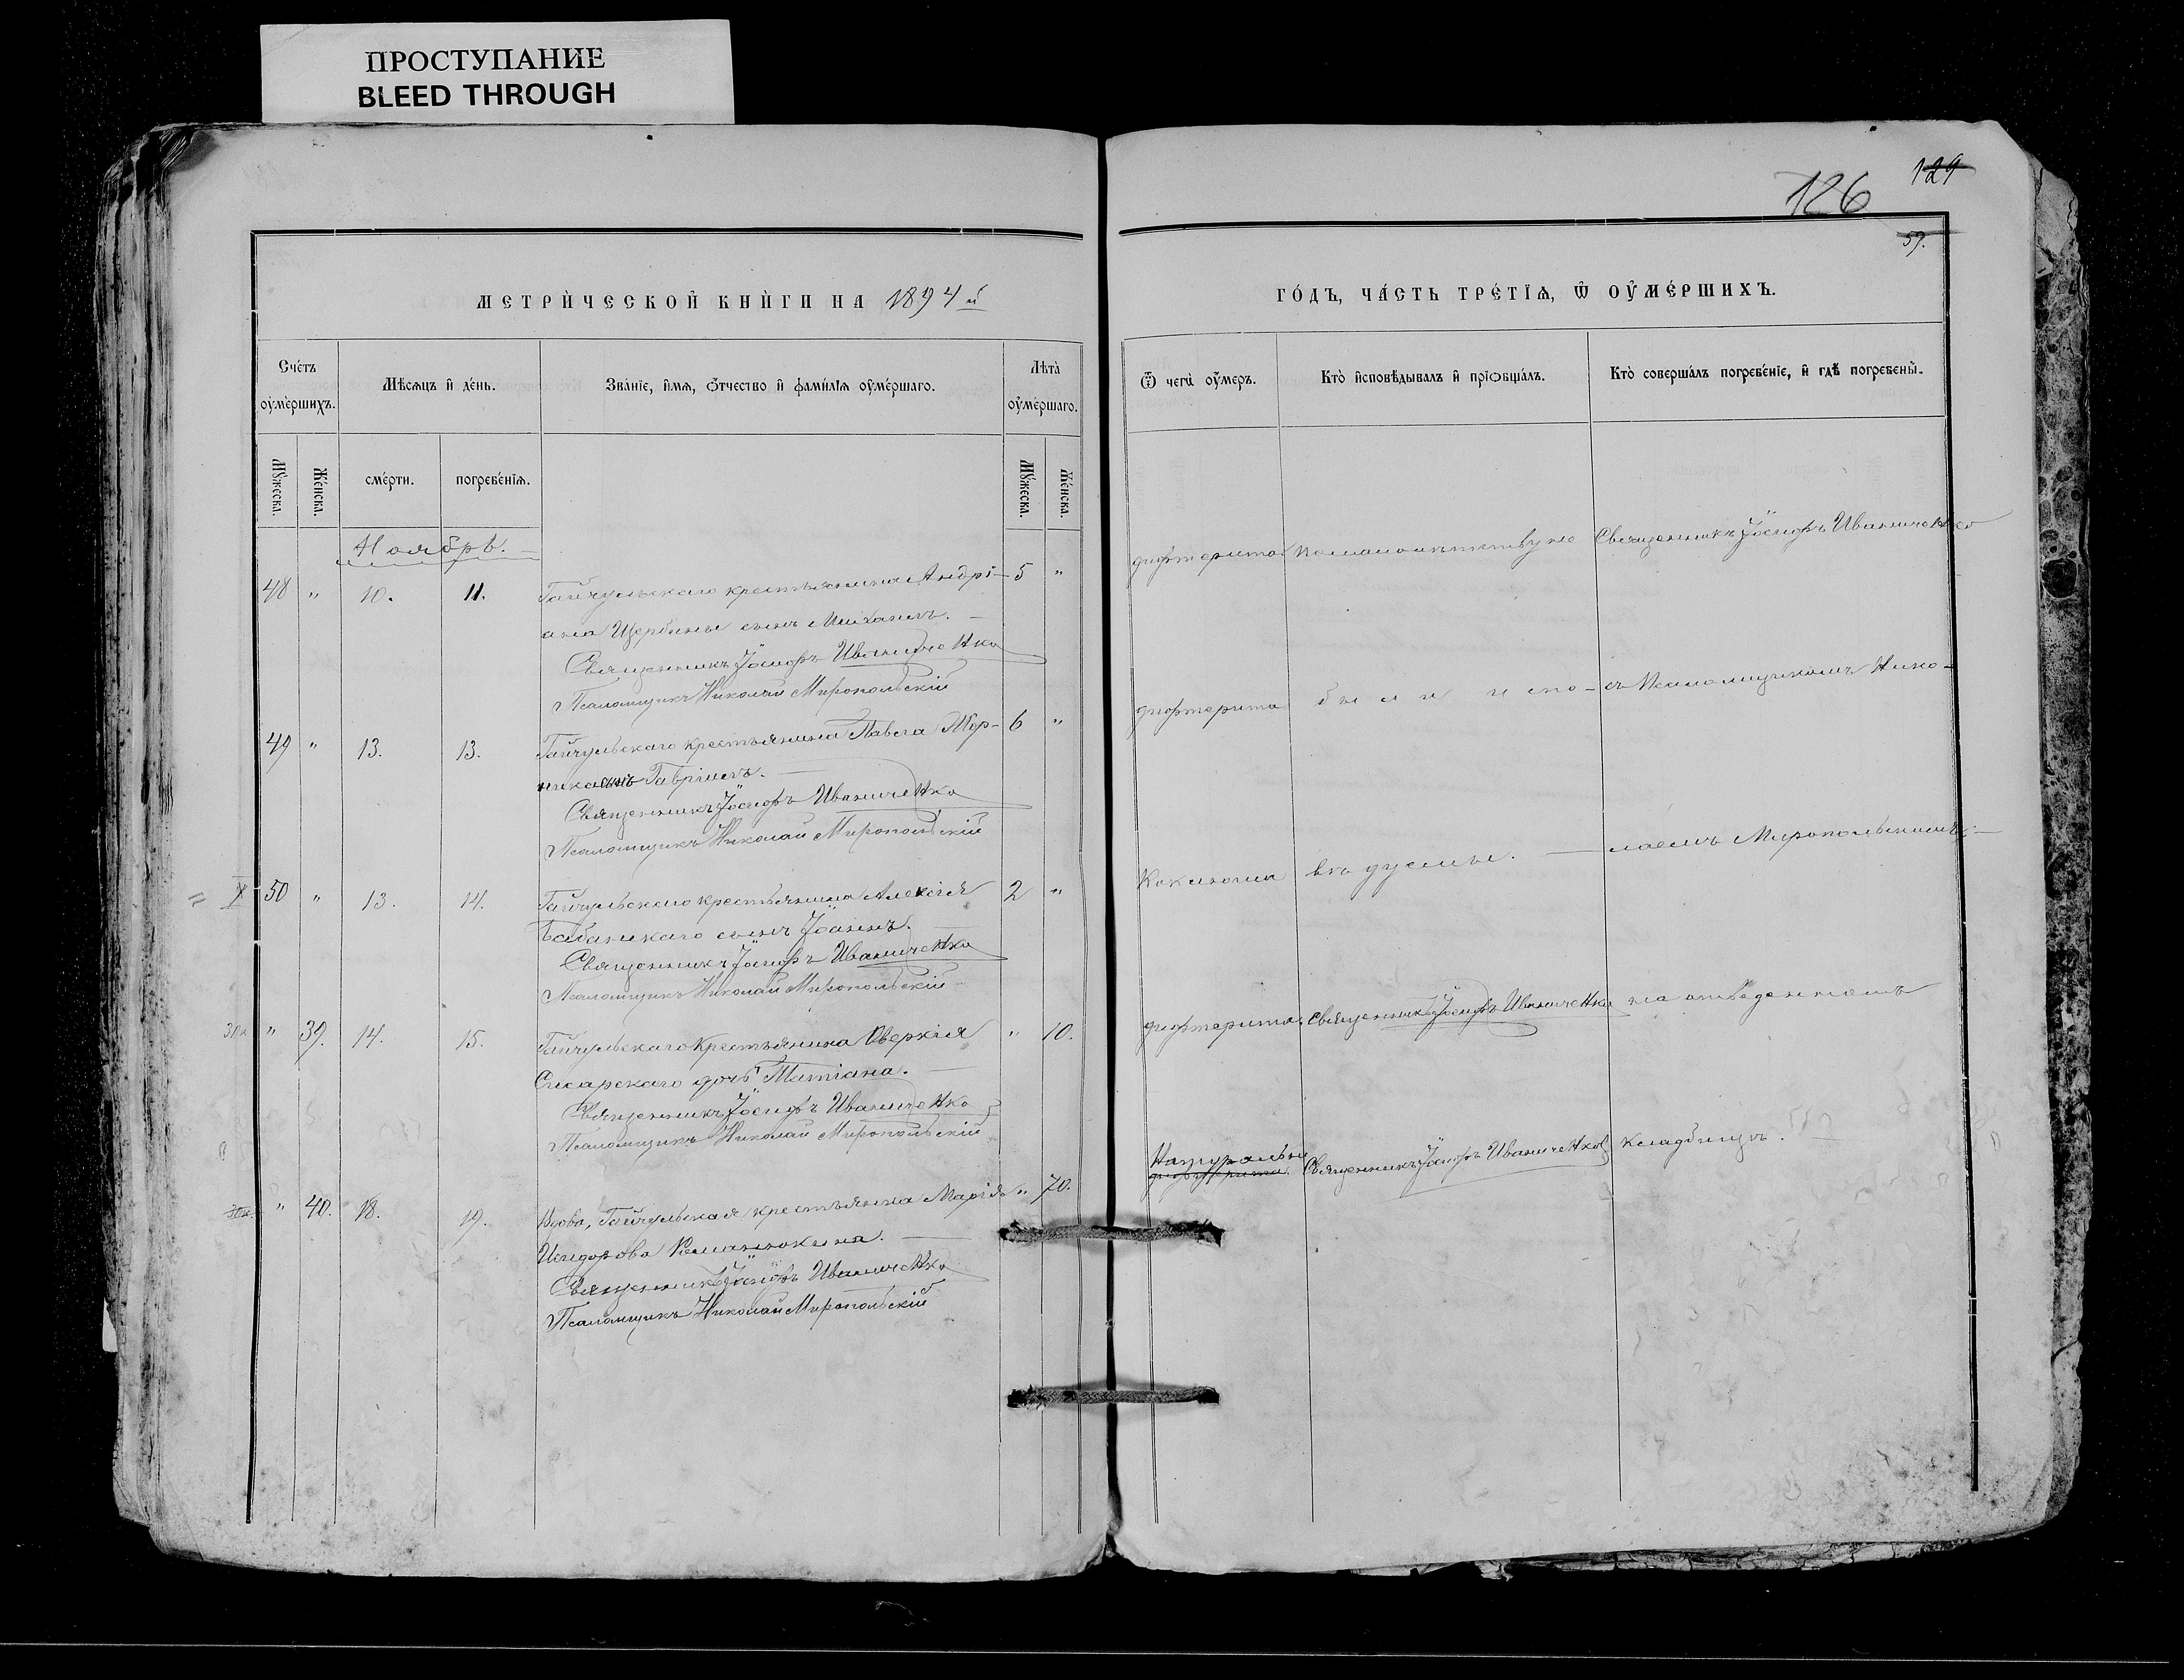 ПРОСТУПАНИЕ
BLEED THROUGH
126
129
57.
МЕТРИ́ЧЕСКОЙ КНИ́ГИ НА 1894 й
ГО́ДЪ, ЧА́СТЬ ТРЕ́ТІѦ, Ѡ҆ ОУ҆МЕ́РШИХЪ.
Сче́тъ оу҆ме́ршихъ.
Мѣ́сѧцъ и҆ де́нь.
Зва́нїе, и҆́мѧ, ѻ҆́тчество и҆ фами́лїѧ оу҆ме́ршаго.
Лѣта̀ оу҆ме́ршаго.
Ѿ чегѡ̀ оу҆́меръ.
Кто̀ и҆сповѣ́дывалъ и҆ прїѡбща́лъ.
Кто̀ соверша́лъ погребе́нїе, и҆ гдѣ̀ погребены̀.
Мꙋ́жеска.
Же́нска.
сме́рти.
погребе́нїѧ.
Мꙋ́жеска.
Же́нска.
Ноябрь.
48 " 10. 11. Гайчульскаго крестьянина Андрі- 5 "
ана Щербины сынъ Михаилъ.
Священникъ Іосифъ Иваниченко
Псаломщикъ Николай Миропольскій
дифтерита По малолѣтству не Священникъ Іосифъ Иваниченко
49 " 13. 13. Гайчульскаго крестьянина Павла 6 "
сынъ Гавріилъ.
Священникъ Іосифъ Иваниченко
Псаломщикъ Николай Миропольскій
дифтерита были испо- съ Псаломщикомъ Нико-
50 " 13. 14. Гайчульскаго крестьянина Алексія 2 "
сынъ Іоаннъ.
Священникъ Іосифъ Иваниченко
Псаломщикъ Николай Миропольскій
Коклюша лаемъ Миропольскимъ
" 39. 14. 15. Гайчульскаго крестьянина Аверкія " 10.
дочь Татіана.
Священникъ Іосифъ Иваниченко
Псаломщикъ Николай Миропольскій
дифтерита Священникъ Іосифъ Иваниченко на отведенномъ
" 40. 18. 19. Вдова, Гайчульская крестьянка Марія " 70.
Исидорова
Священникъ Іосифъ Иваниченко
Псаломщикъ Николай Миропольскій
Натурально
дифтерита Священникъ Іосифъ Иваниченко кладбищѣ.